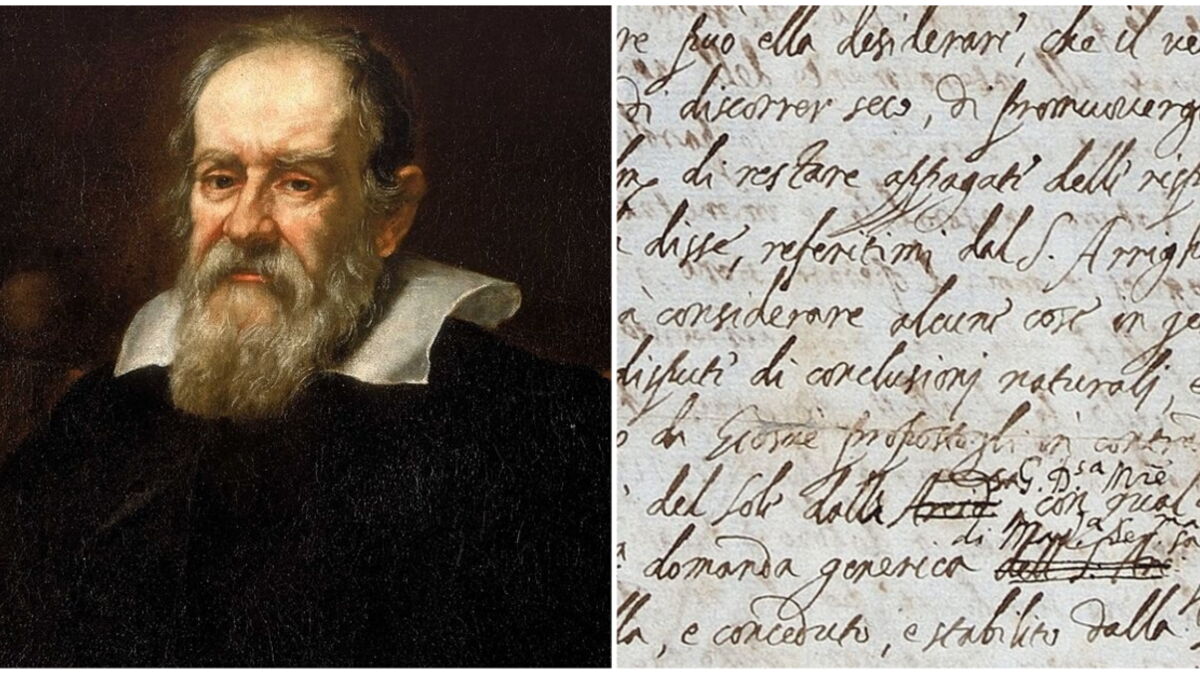 re può ella desiderare, che il ve
di discorrer seco, di promuovergl
di restare appagati delle risp
disse, referitimi dal S. Arrigh
à considerare alcune cose in ge
disputi di conclusioni naturali, e
da Giosuè propostogli in contra
sa G. D.sa Mre
del Sole dalla con qual
di Mad.a Ser.ma
domanda generica
lla, e conceduto, e stabilito dalla